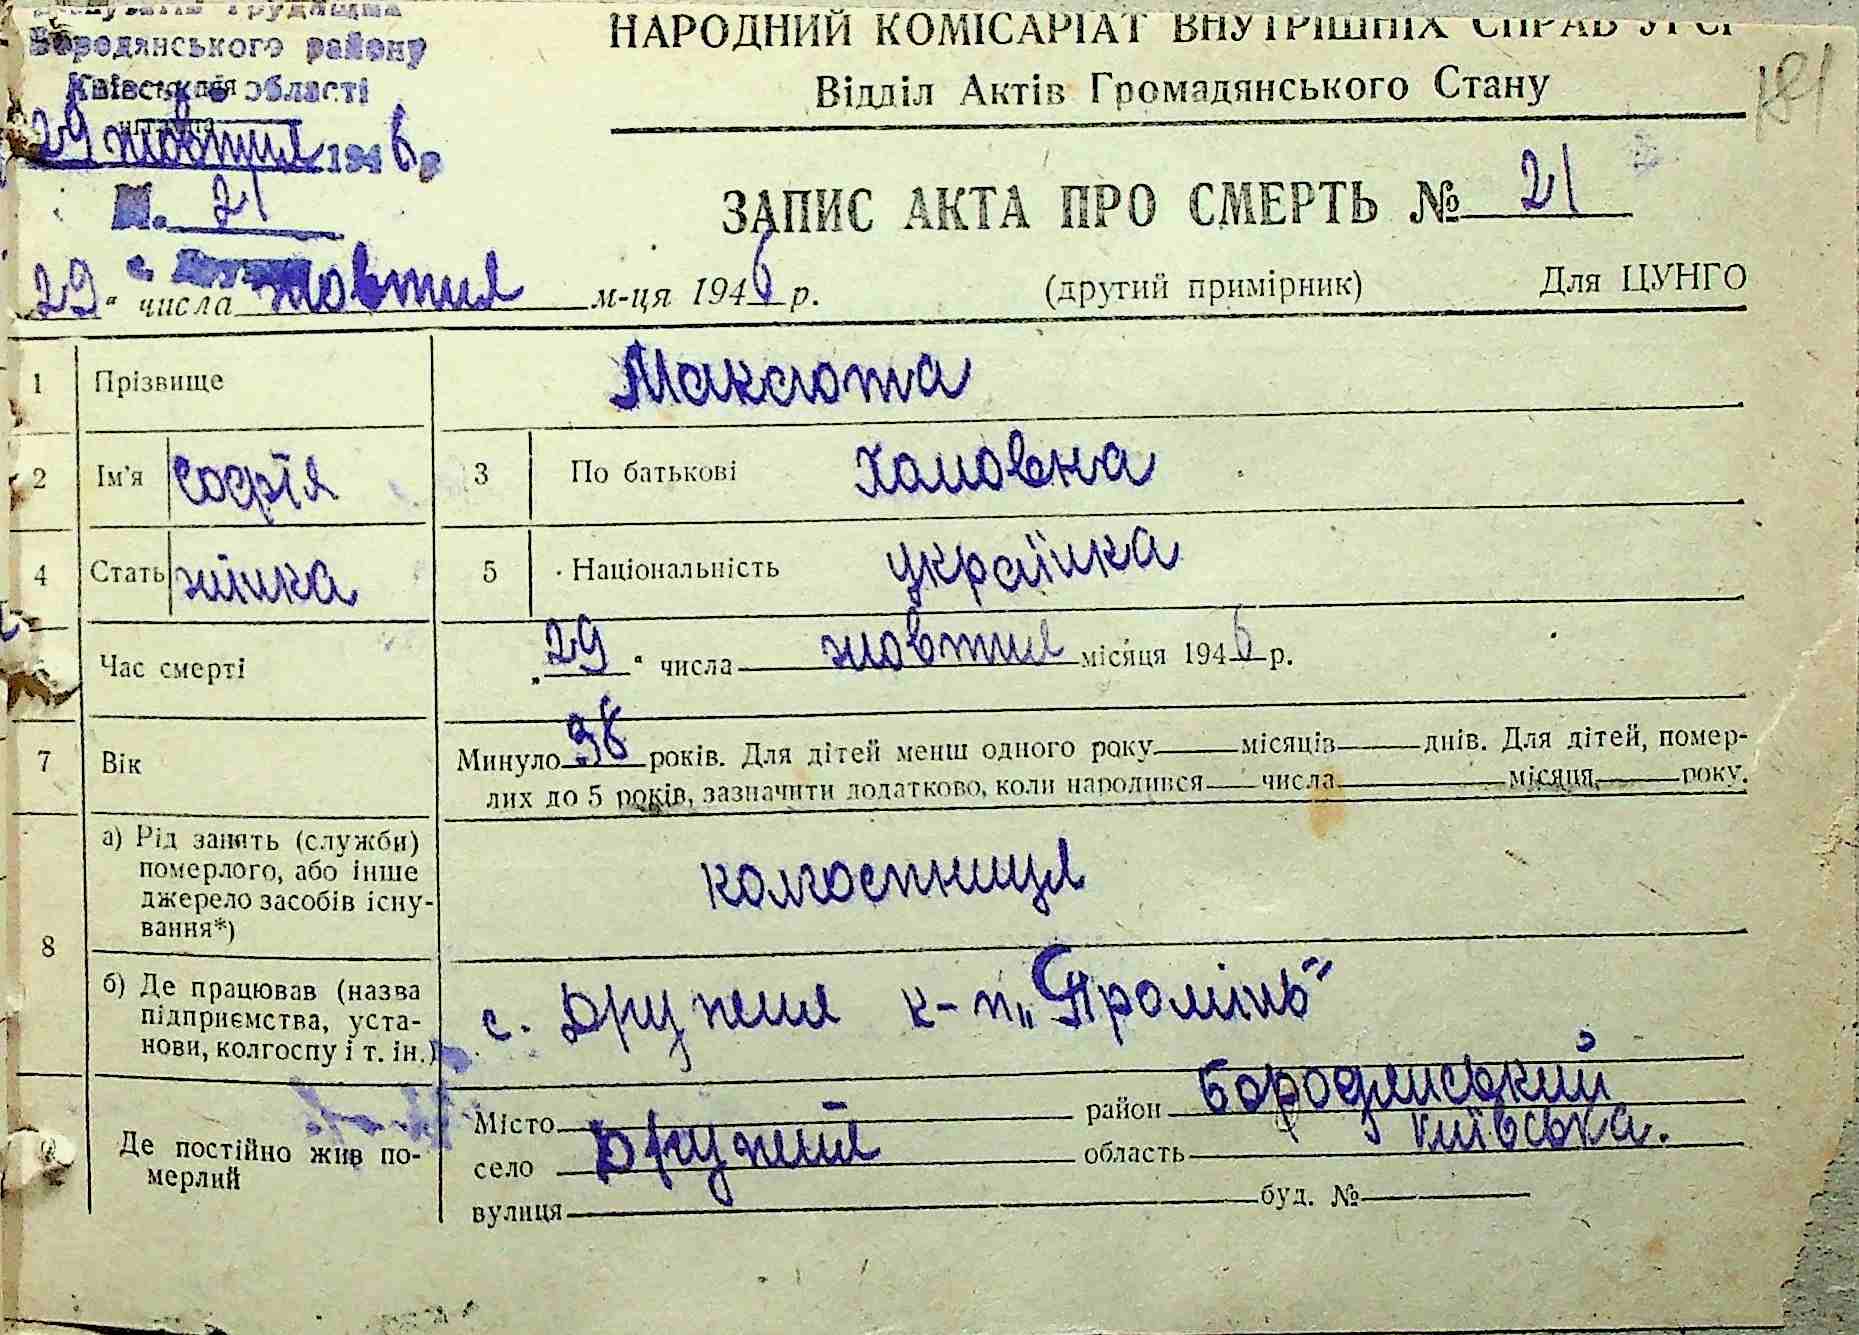 Бородянського району
Київської області
29 жовтня 1946 р
№. 21
с.
181
НАРОДНИЙ КОМІСАРІАТ ВНУТРІШНІХ СПРАВ УРСР
Відділ Актів Громадянського Стану
ЗАПИС АКТА ПРО СМЕРТЬ № 21
29 " числа жовтня м-ця 1946 р. (другий примірник) Для ЦУНГО
1 Прізвище Максюта
2 Ім'я Софія 3 По батькові Хомовна
4 Стать жінка 5 Національність українка
Час смерті „29 " числа жовтня місяця 1946 р.
7 Вік Минуло 38 років. Для дітей менш одного року місяців днів. Для дітей, помер-
лих до 5 років, зазначити додатково, коли народився числа місяця року.
8 а) Рід занять (служби)
померлого, або інше
джерело засобів існу-
вання*) колгоспниця
б) Де працював (назва
підприємства, уста-
нови, колгоспу і т. ін.) с. Дружня к-п „Промінь"
9 Де постійно жив по-
мерлий
Місто район Бородянський
село Дружня область Київська.
вулиця буд. №